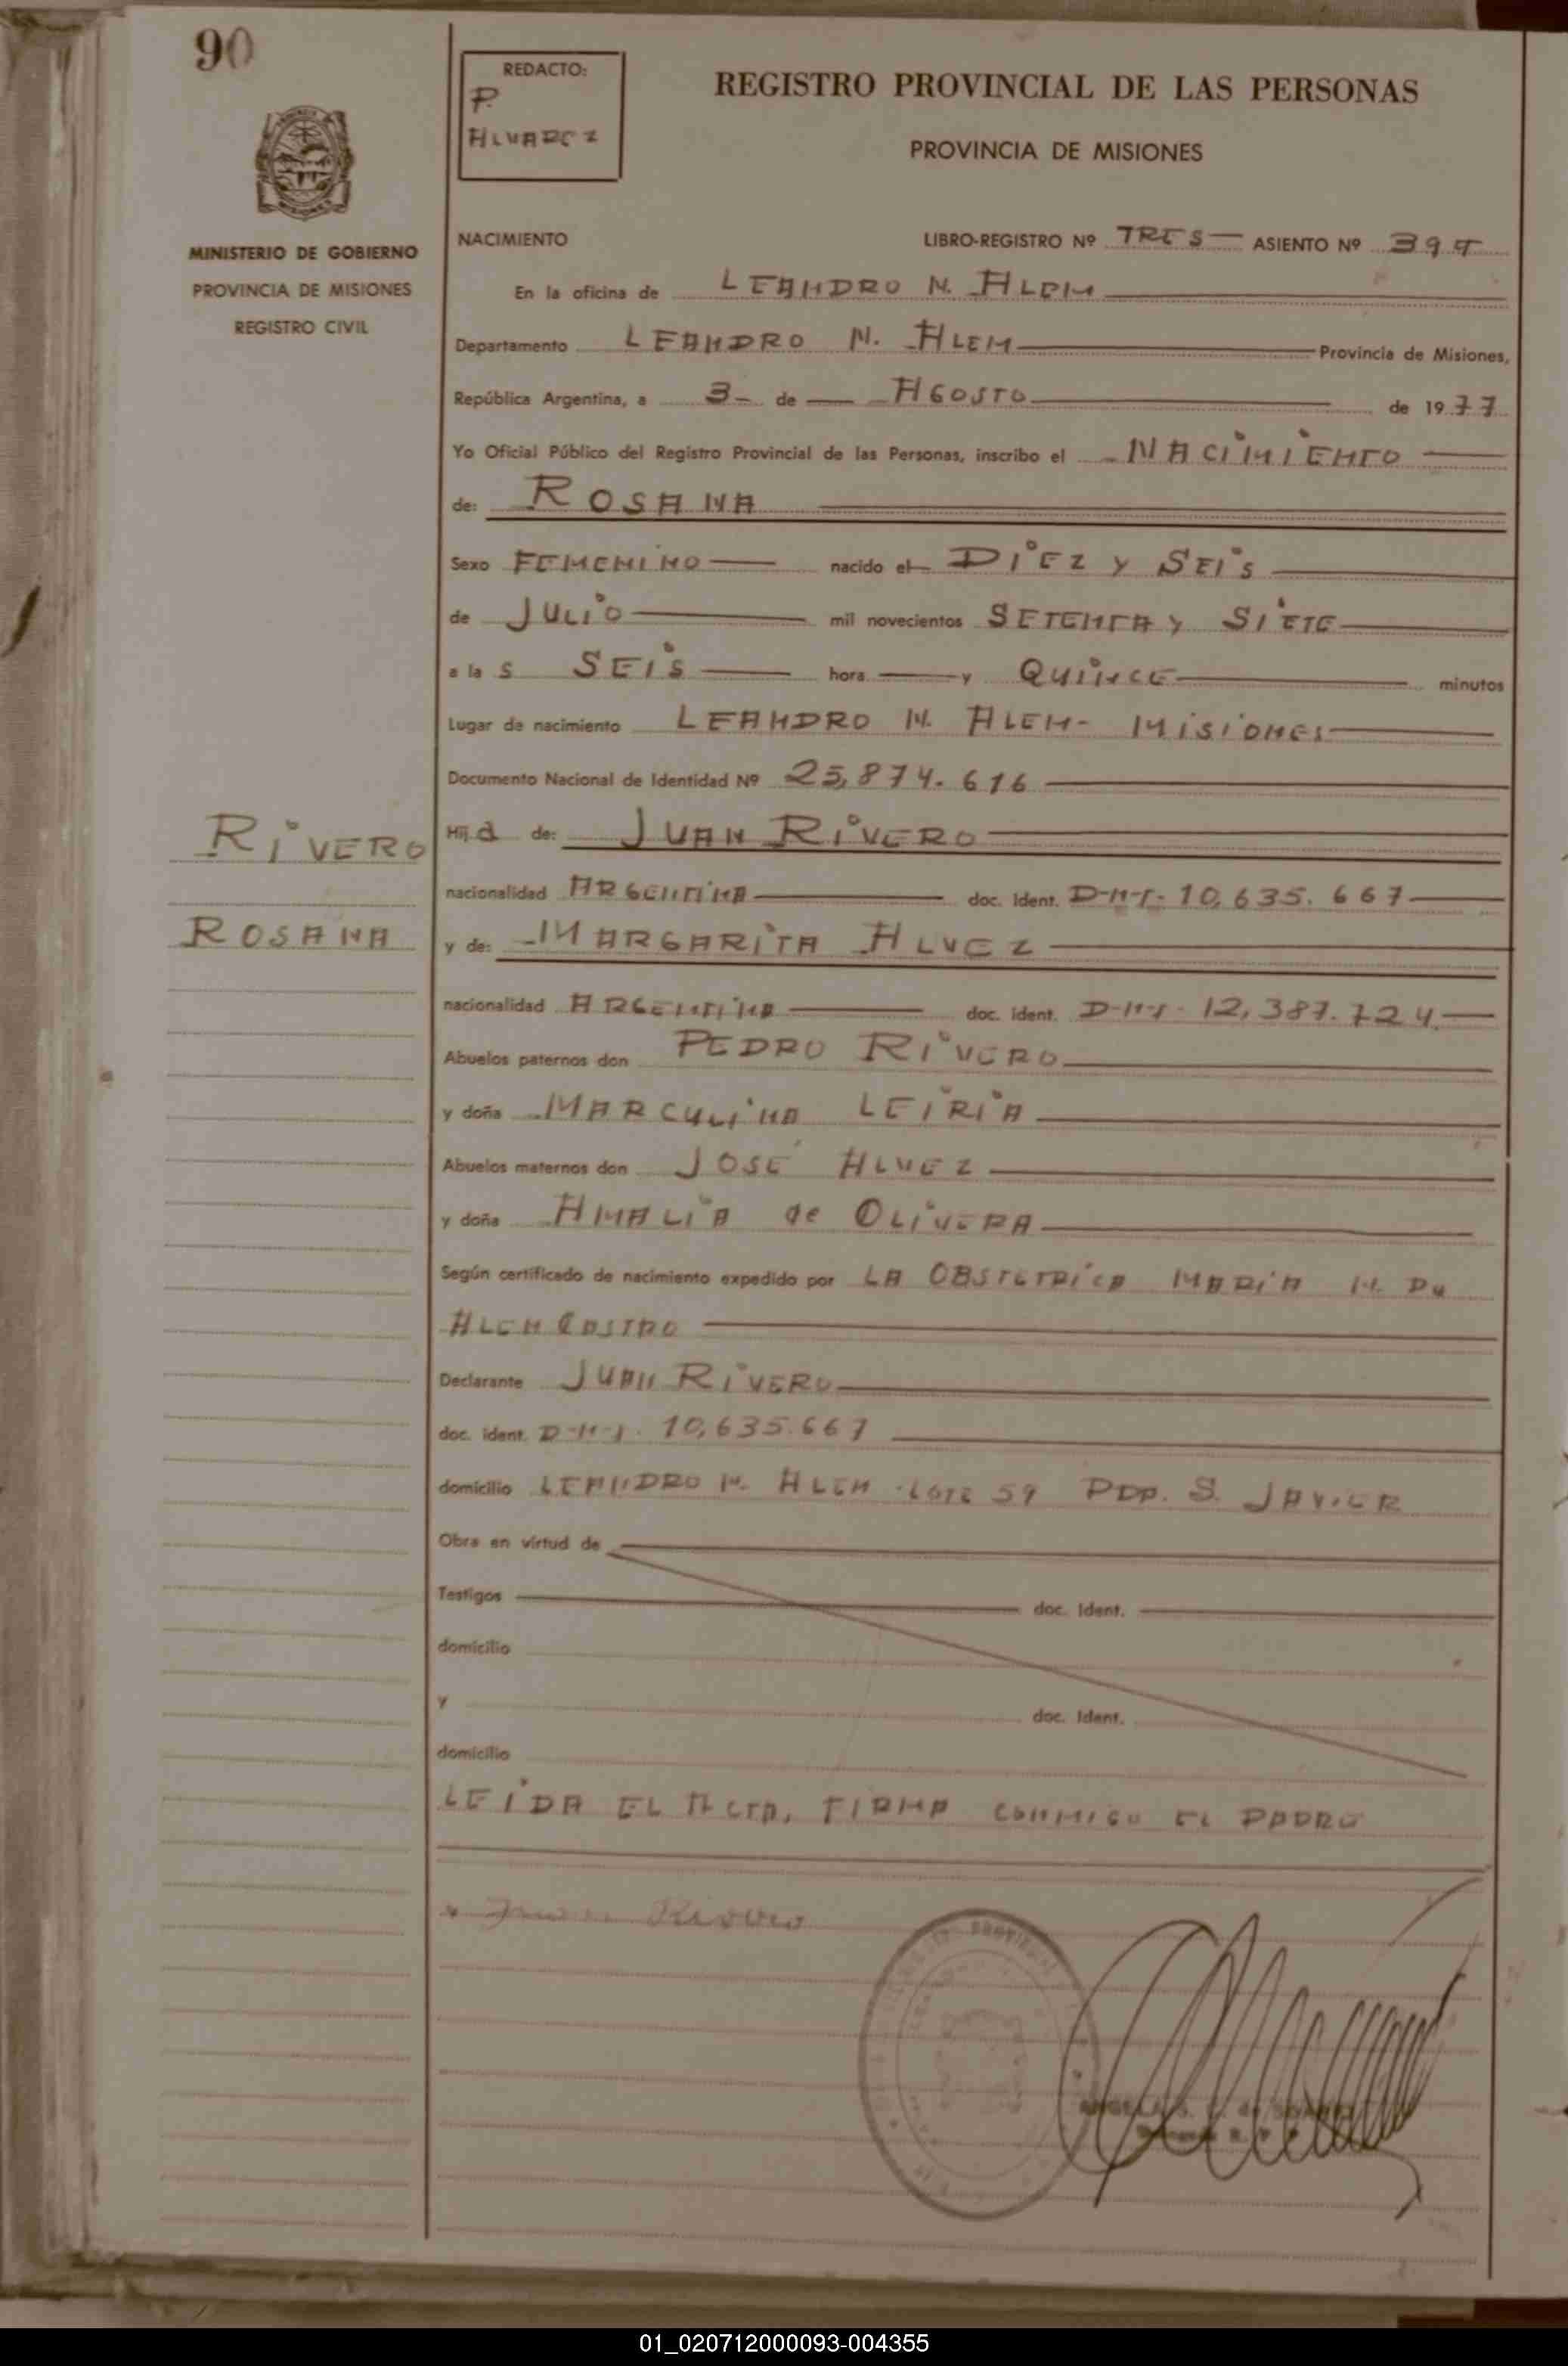 90
REDACTO:
P.
ALVAREZ
REGISTRO PROVINCIAL DE LAS PERSONAS
PROVINCIA DE MISIONES
MINISTERIO DE GOBIERNO
PROVINCIA DE MISIONES
REGISTRO CIVIL
NACIMIENTO LIBRO-REGISTRO Nº TRES ASIENTO Nº
En la oficina de LEANDRO N. ALEM
Departamento LEANDRO N. ALEM Provincia de Misiones,
República Argentina, a 3 de AGOSTO de 1977
Yo Oficial Público del Registro Provincial de las Personas, inscribo el NACIMIENTO
de: ROSANA
Sexo FEMENINO nacido el DIEZ Y SEIS
de JULIO mil novecientos SETENTA Y SIETE
a la S SEIS hora y QUINCE minutos
Lugar de nacimiento LEANDRO N. ALEM - MISIONES
Documento Nacional de Identidad Nº 25,874.616
RIVERO
Hija de: JUAN RIVERO
nacionalidad ARGENTINA doc. ident. D-N-I- 10,635.667
ROSANA
y de: MARGARITA ALVEZ
nacionalidad ARGENTINA doc. ident. D-N-I- 12,387.724
Abuelos paternos don PEDRO RIVERO
y doña MARCULINA LEIRIA
Abuelos maternos don JOSÉ ALVEZ
y doña AMALIA de OLIVERA
Según certificado de nacimiento expedido por LA OBSTETRICA MARIA
Declarante JUAN RIVERO
doc. ident. D-N-I. 10,635.667
domicilio LEANDRO N. ALEM LOTE 59 S. JAVIER
Obra en virtud de
Testigos doc. ident.
domicilio
y doc. ident.
domicilio
LEIDA EL ACTA, FIRMA CONMIGO EL PADRE
Juan Rivero
01_020712000093-004355